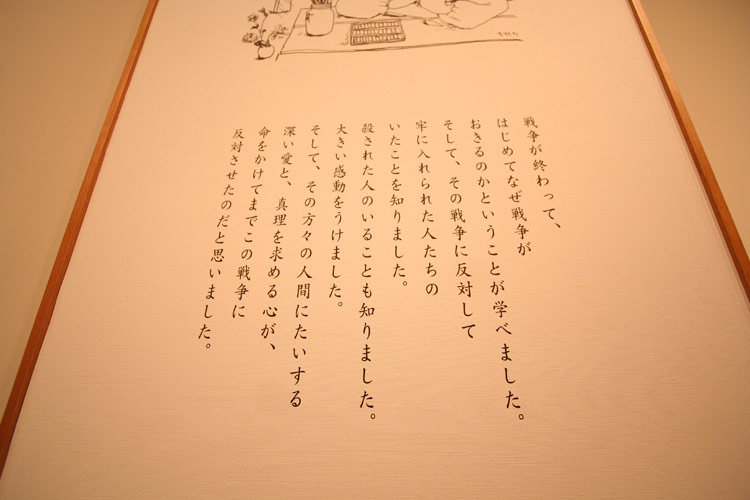 戦争が終わって、
はじめてなぜ戦争が
おきるのかということが学べました。
そして、その戦争に反対して
牢に入れられた人たちの
いたことを知りました。
殺された人のいることも知りました。
大きい感動をうけました。
そして、その方々の人間にたいする
深い愛と、真理を求める心が、
命をかけてまでこの戦争に
反対させたのだと思いました。